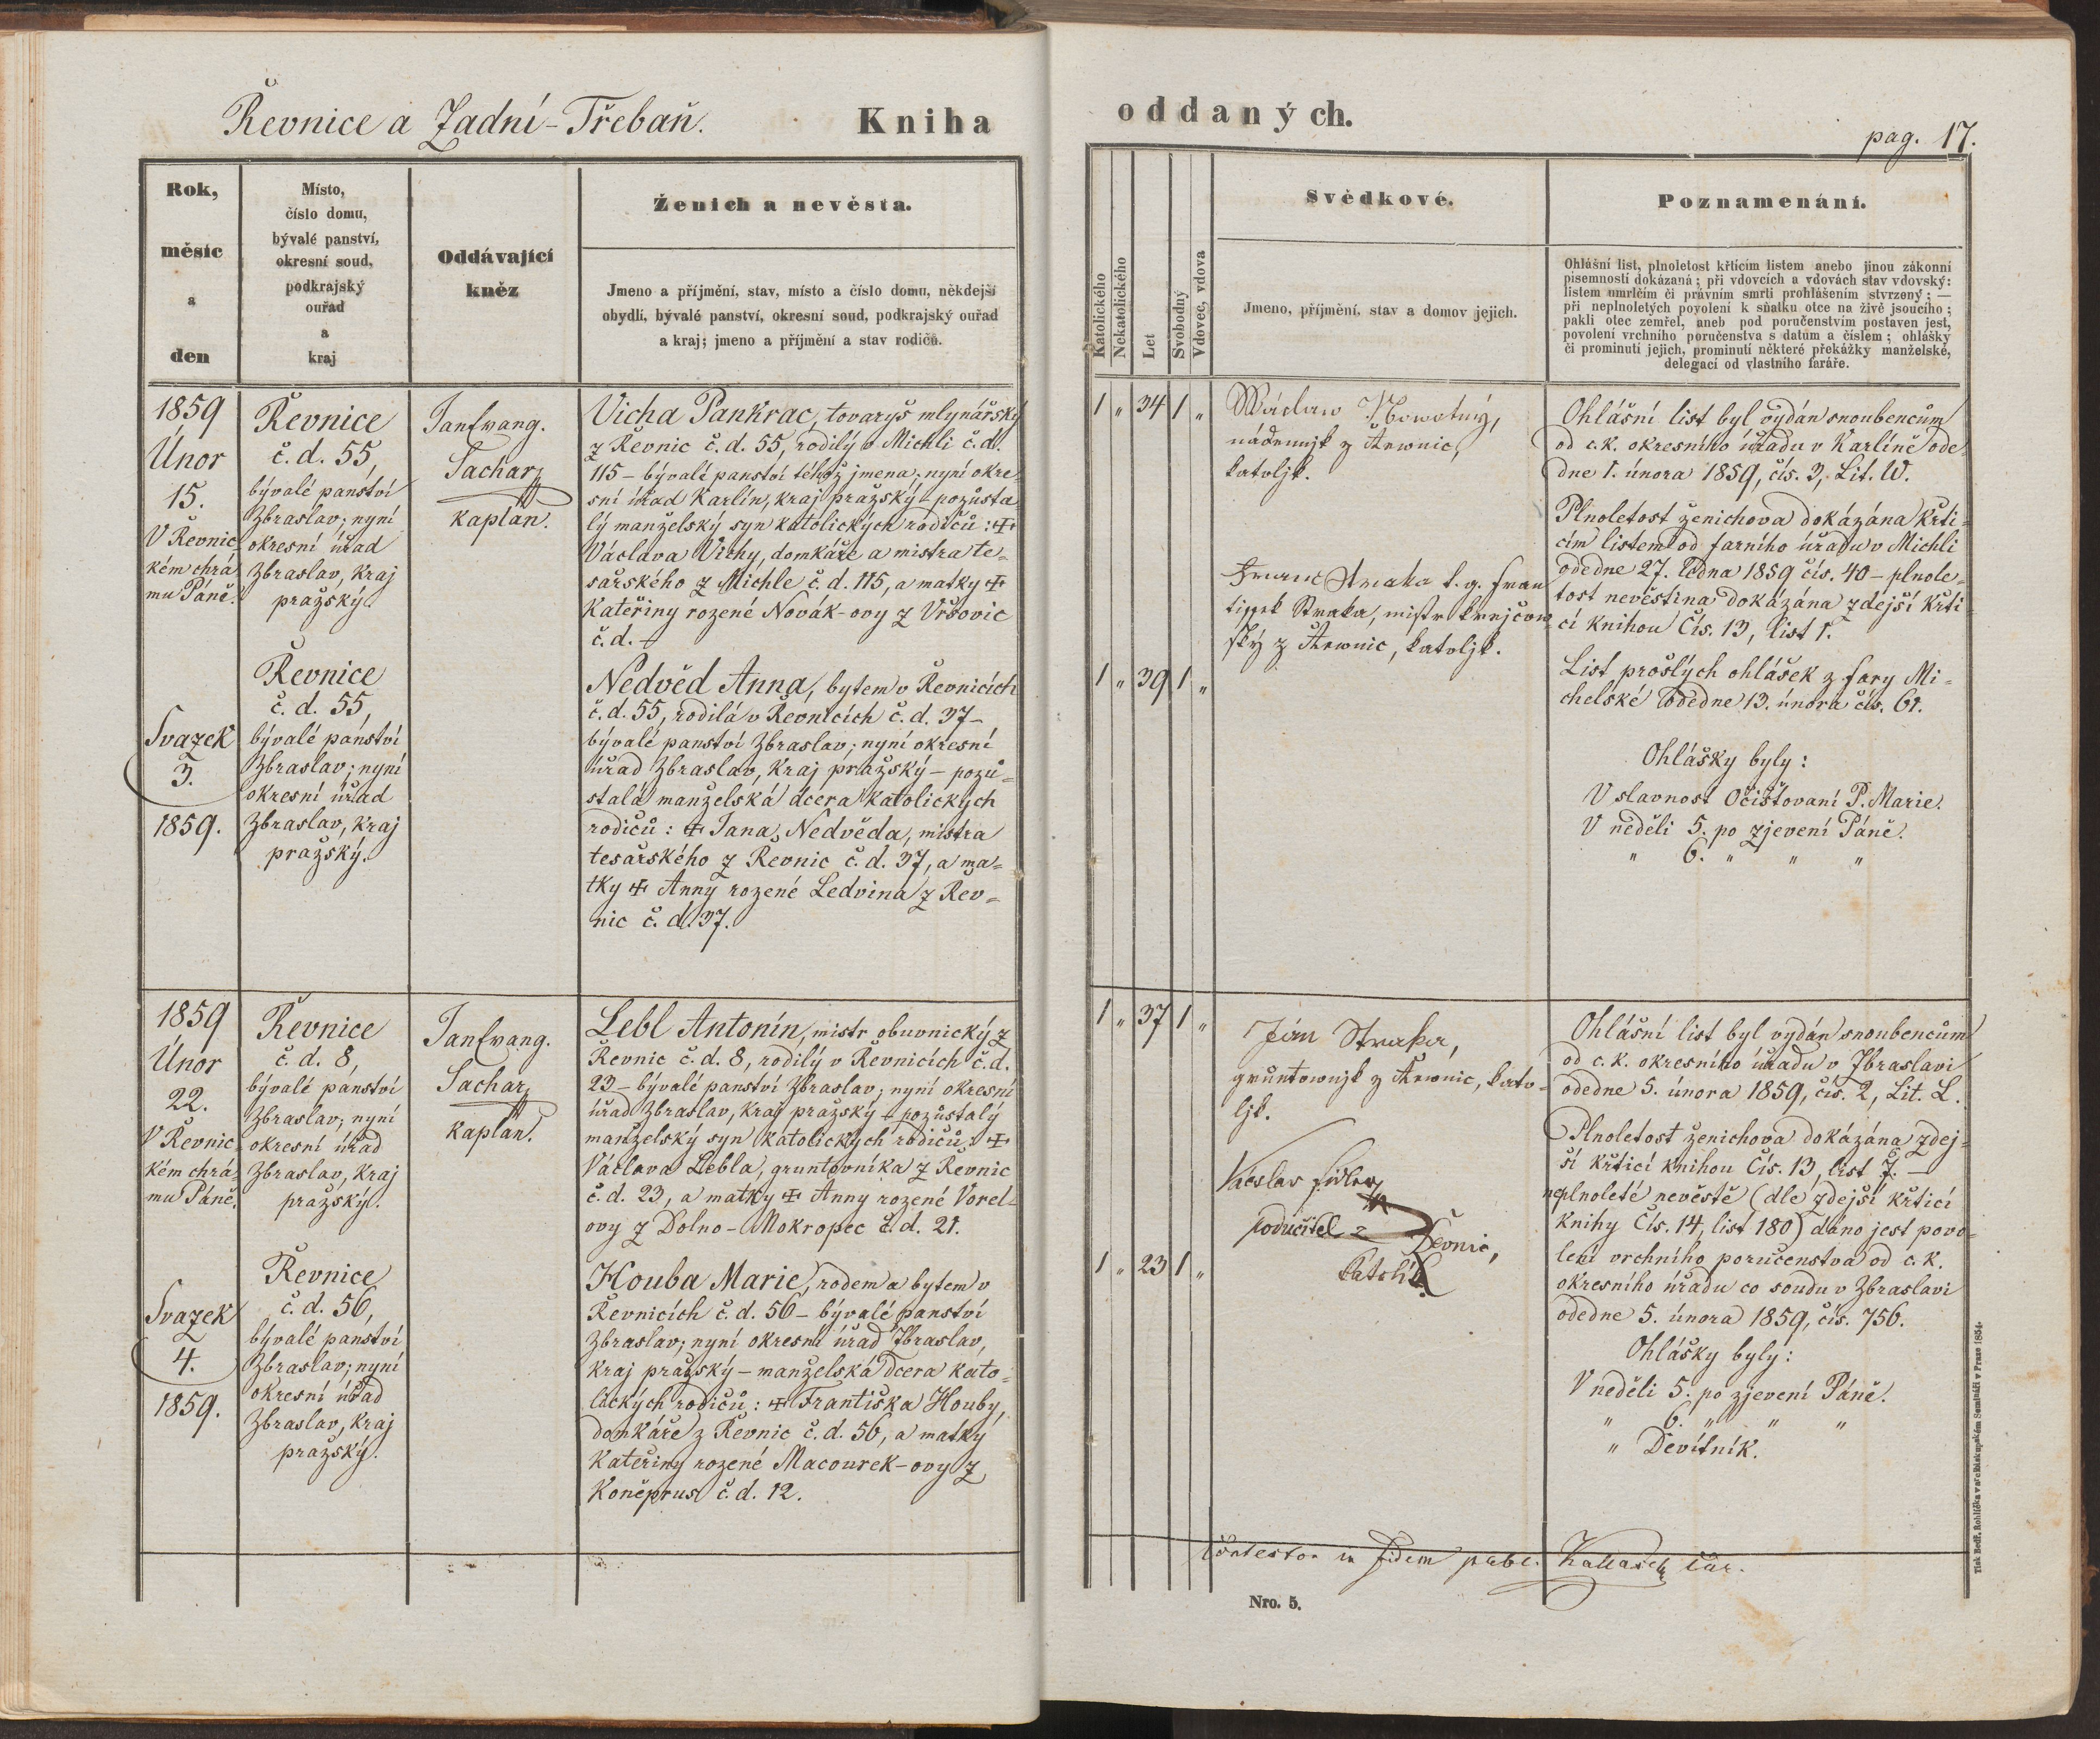 Řevnice a Zadní-Třebaň.
Kniha
oddaných.
pag. 17.
Rok,
měsíc
a
den
Místo,
číslo domu,
bývalé panství,
okresní soud,
podkrajský
ouřad
a
kraj
Oddávající
kněz
Ženich a nevěsta.
Jmeno a příjmění, stav, místo a číslo domu, někdejší
obydlí, bývalé panství, okresní soud, podkrajský ouřad
a kraj; jmeno a příjmění a stav rodičů.
Katolického
Nekatolického
Let
Svobodný
Vdovec, vdova
Svědkové.
Jmeno, příjmění, stav a domov jejich.
Poznamenání.
Ohlášní list, plnoletost křticím listem anebo jinou zákonní
písemností dokázaná; při vdovcích a vdovách stav vdovský:
listem umrlčím či právním smrti prohlášením stvrzený; —
při neplnoletých povolení k sňatku otce na živě jsoucího;
pakli otec zemřel, aneb pod poručenstvím postaven jest,
povolení vrchního poručenstva s datům a číslem; ohlášky
či prominutí jejich, prominutí některé překážky manželské,
delegací od vlastního faráře.
1859
Únor
15.
V Řevnic-
kém chrá-
mu Páně.
Svazek
3.
1859.
Řevnice
č. d. 55,
bývalé panství
Zbraslav; nyní
okresní úřad
Zbraslav, kraj
pražský.
Řevnice
č. d. 55,
bývalé panství
Zbraslav; nyní
okresní úřad
Zbraslav, kraj
pražský.
Jan Evang.
Sachar
kaplan.
Vicha Pankrac, tovaryš mlynářský
z Řevnic č. d. 55, rodilý v Michli č. d.
115 – bývalé panství téhož jmena; nyní okre-
sní úřad Karlín, kraj pražský – pozůsta-
lý manželský syn katolických rodičů: ✠
Václava Vichy, domkáře a mistra te-
sařského z Michle č. d. 115, a matky ✠
Kateřiny rozené Novák-ovy z Vršovic
č. d. –
Nedvěd Anna, bytem v Řevnicích
č. d. 55, rodilá v Řevnicích č. d. 37 –
bývalé panství Zbraslav; nyní okresní
úřad Zbraslav, kraj pražský – pozů-
stalá manželská dcera katolických
rodičů: ✠ Jana Nedvěda, mistra
tesařského z Řevnic č. d. 37, a ma-
tky ✠ Anny rozené Ledvina z Řev-
nic č. d. 37.
1 „ 34 1 „
1 „ 39 1 „
Wáclaw Nowotný,
nádennjk z Řewnic,
katoljk.
Franc Straka t. g. Fran
tissek Straka, mistr krejčow
ský z Řewnic, katoljk.
Ohlášní list byl vydán snoubencům
od c. k. okresního úřadu v Karlíně ode
dne 1. února 1859, čís. 3, Lit. W.
Plnoletost ženichova dokázána křti-
cím listem od farního úřadu v Michli
odedne 27. ledna 1859 čís. 40 – plnole-
tost nevěstina dokázána zdejší křti
cí knihou Čís. 13, list 1.
List prošlých ohlášek z fary Mi-
chelské odedne 13. února čís. 61.
Ohlášky byly:
V slavnost Očišťovaní P. Marie.
V neděli 5. po zjevení Páně.
„ 6. „ „ „
1859
Únor
22.
V Řevnic-
kém chrá-
mu Páně.
Svazek
4.
1859.
Řevnice
č. d. 8,
bývalé panství
Zbraslav; nyní
okresní úřad
Zbraslav, kraj
pražský.
Řevnice
č. d. 56,
bývalé panství
Zbraslav; nyní
okresní úřad
Zbraslav, kraj
pražský.
Jan Evang.
Sachar
kaplan.
Lebl Antonín, mistr obuvnický z
Řevnic č. d. 8, rodilý v Řevnicích č. d.
23 – bývalé panství Zbraslav; nyní okresní
úřad Zbraslav, kraj pražský – pozůstalý
manželský syn katolických rodičů: ✠
Václava Lebla, gruntovníka z Řevnic
č. d. 23, a matky ✠ Anny rozené Vorel-
ovy z Dolno-Mokropec č. d. 21.
Houba Marie, rodem a bytem v
Řevnicích č. d. 56 – bývalé panství
Zbraslav; nyní okresní úřad Zbraslav,
kraj pražský – manželská dcera kato-
lických rodičů: ✠ Františka Houby,
domkáře z Řevnic č. d. 56, a matky
Kateřiny rozené Macourek-ovy z
Koněprus č. d. 12.
1 „ 37 1 „
1 „ 23 1 „
Ján Straka,
gruntownjk z Řewnic, kato-
ljk.
Václav
podučitel z Řevnic,
katolík.
Ohlášní list byl vydán snoubencům
od c. k. okresního úřadu v Zbraslavi
odedne 5. února 1859, čís. 2, Lit. L.
Plnoletost ženichova dokázána zdej-
ší křticí knihou Čís. 13, list 7. –
neplnoleté nevěstě (dle zdejší křticí
knihy Čís. 14, list 180) dáno jest povo-
lení vrchního poručenstva od c. k.
okresního úřadu co soudu v Zbraslavi
odedne 5. února 1859, čís. 756.
Ohlášky byly:
V neděli 5. po zjevení Páně.
„ 6. „ „ „
„ Devítník.
in fidem
Nro. 5.
Tisk Bedř. Rohlíčka v arcibiskupském Semináři v Praze 1854.